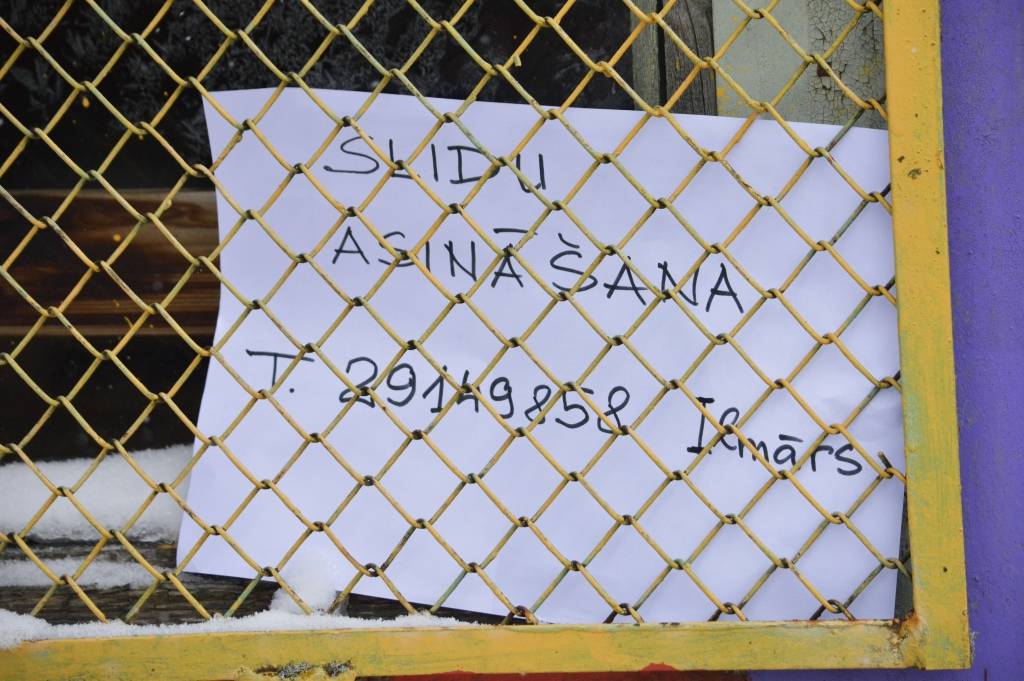 SLIDU
ASINĀŠANA
T. 29149858 Ilmārs